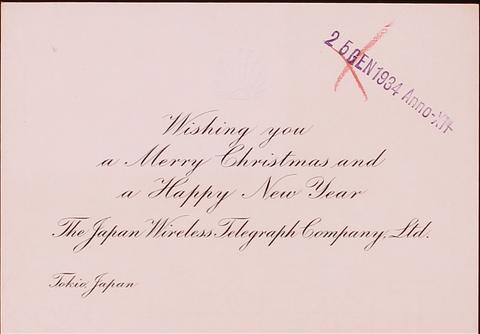 25 GEN 1934 Anno-XII
Wishing you
a Merry Christmas and
a Happy New Year
The Japan Wireless Telegraph Company, Ltd.
Tokio, Japan